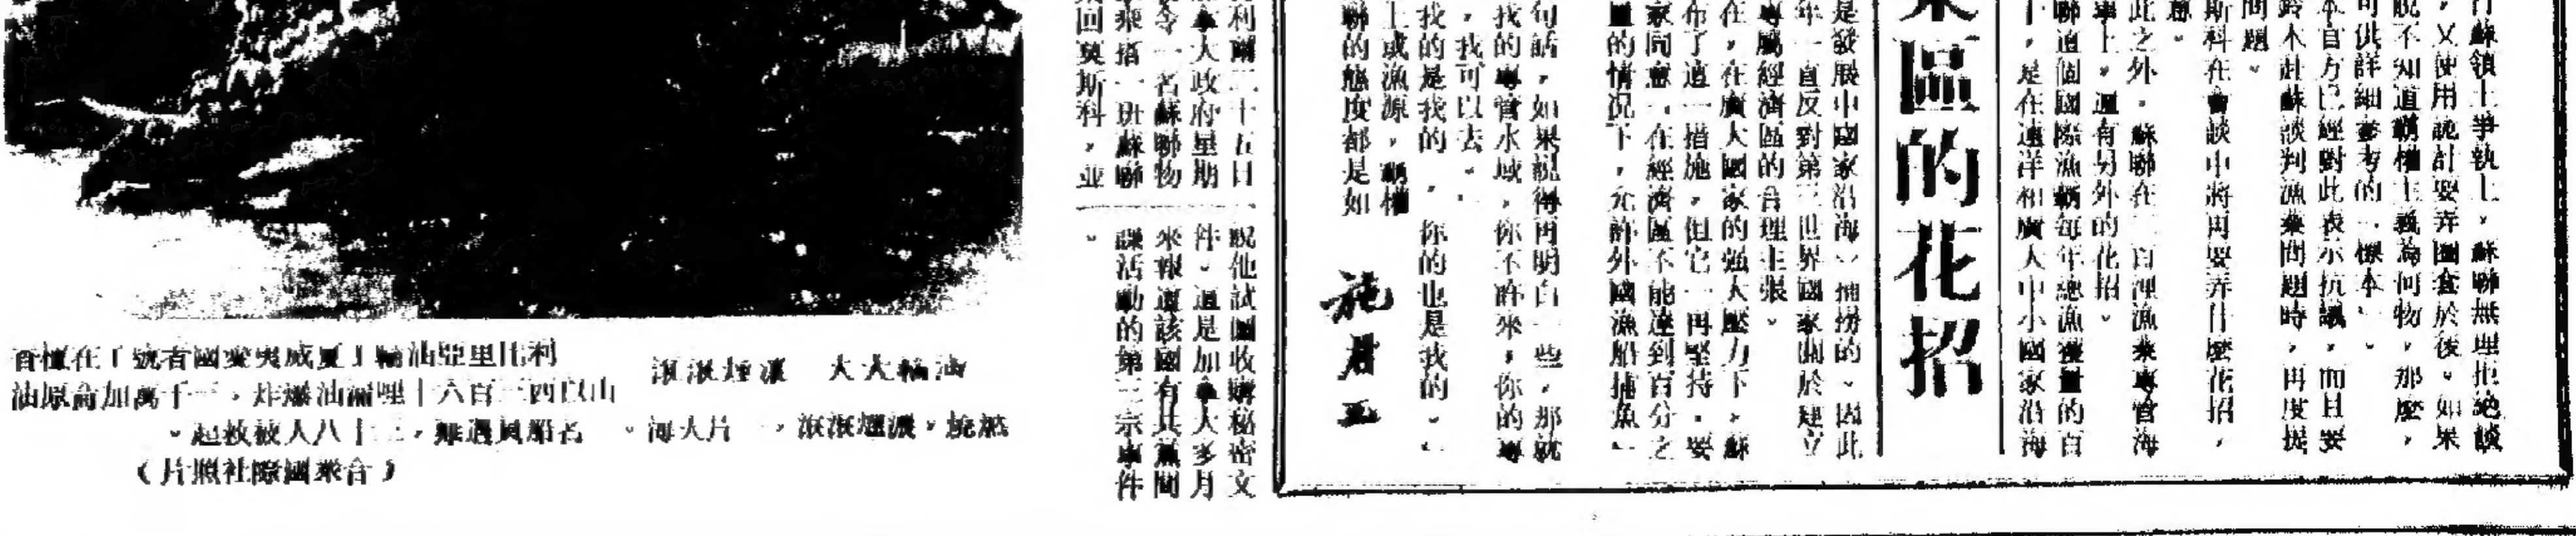 行蘇領土爭執上，蘇聯無理拒絕談
，又使用詭計耍弄圈套於後。如果
說不知道霸權主義為何物，那麼，
可供詳細參考的「標本」。
本官方已經對此表示抗議，而且要
鈴木赴蘇談判漁業問題時，再度提
問題。
斯科在會談中將再耍弄什麼花招，
意。
此之外，蘇聯在二百浬漁業專管海
事上，還有另外的花招。
聯這個國際漁霸每年總漁獲量的百
下，是在遠洋和廣大中小國家沿海
業區的花招
是發展中國家沿海）捕撈的。因此
年一直反對第三世界國家關於建立
專屬經濟區的合理主張。
在，在廣大國家的強大壓力下，蘇
布了這一措施，但它一再堅持，要
家同意「在經濟區不能達到百分之
量的情況下，允許外國漁船捕魚」
句話，如果說得再明白一些，那就
我的專管水域，你不許來，你的專
，我可以去。
我的是我的，你的也是我的。」
上或漁源，霸權
聯的態度都是如
施君玉
利爾二十五日
拿大政府星期
令一名蘇聯物
乘搭一班蘇聯
回莫斯科，並
說他試圖收購秘密文
件。這是加拿大多月
來報道該國有共黨間
諜活動的第三宗事件
。
油輪大火 濃煙滾滾
利比里亞油輪「夏威夷愛國者號」在檀香
山以西三百六十哩海面爆炸，三千萬加侖原油
燃燒，濃煙滾滾，一片火海。
名船員遇難，三十八人被救起。
（合眾國際社照片）